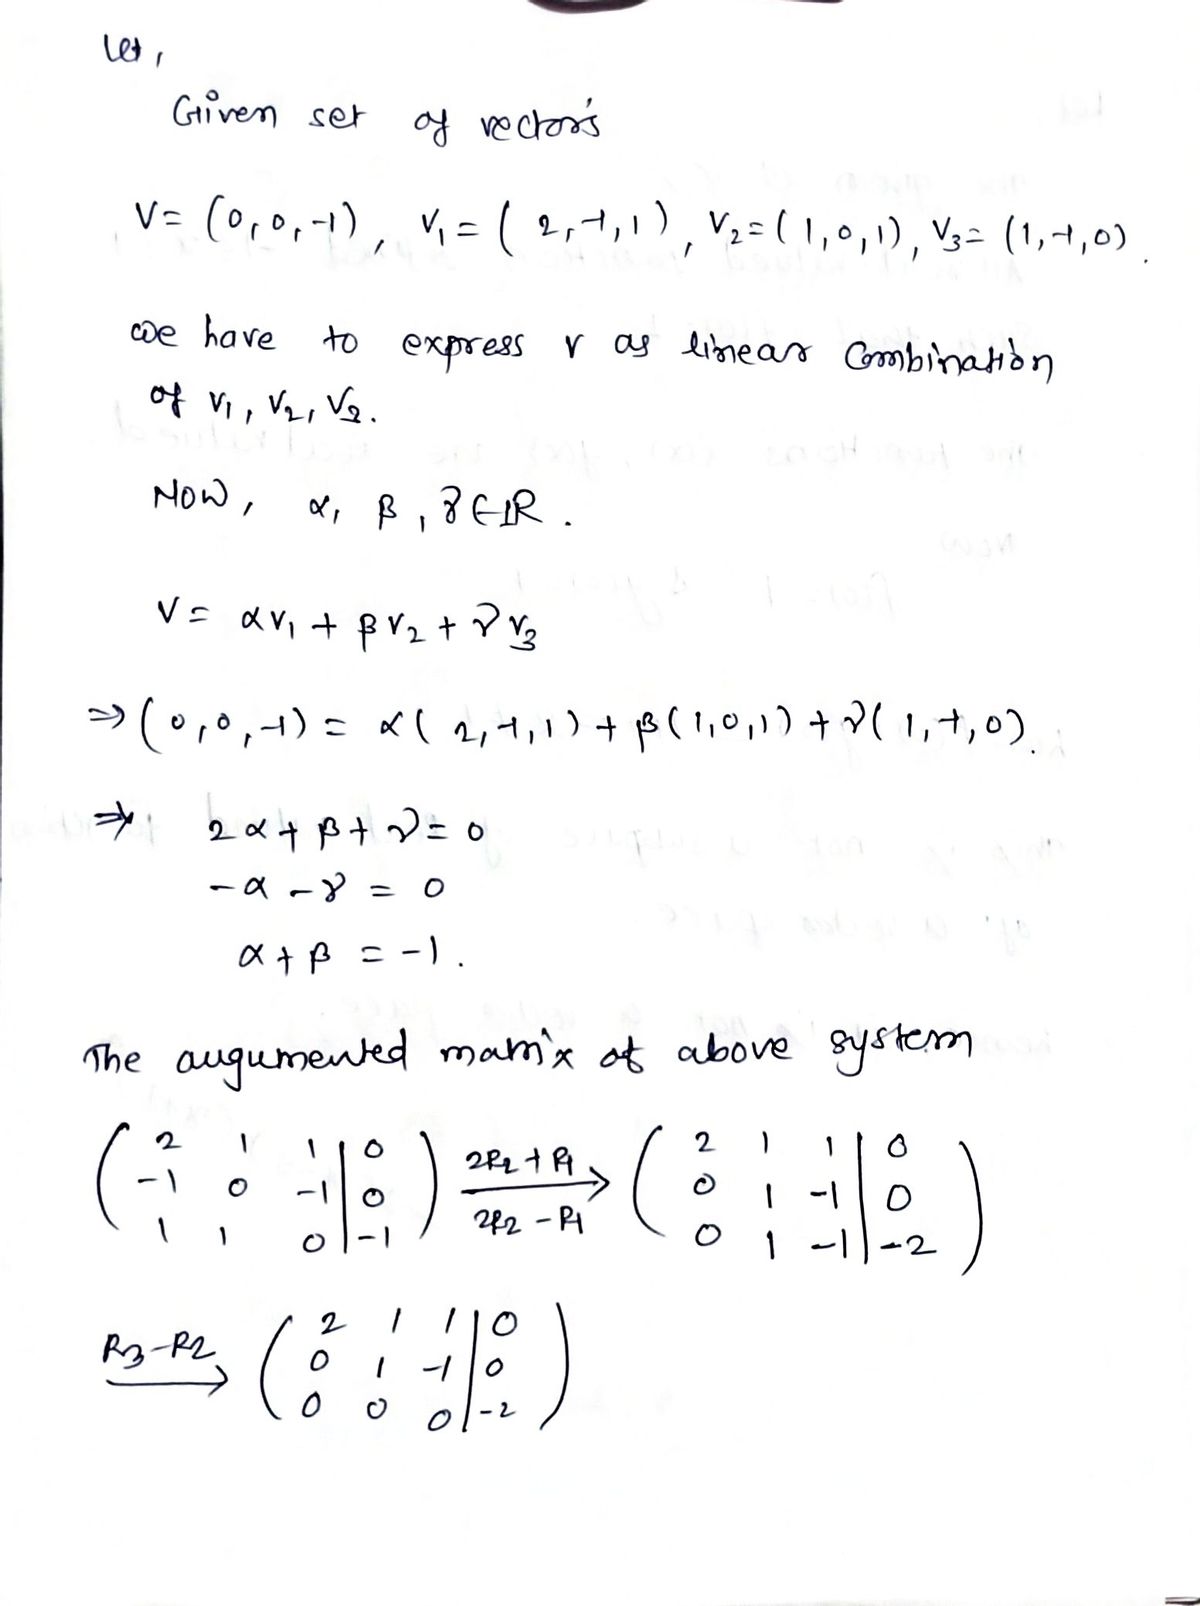 Let,
Given set of vector's
V= (0,0,-1), V₁= ( 2,-1,1), V₂=( 1,0,1), V₃= (1,-1,0).
we have to express v as linear Combination
of v₁, V₂, V₃.
Now, α, β, γ∈ℝ.
V= αv₁ + βv₂ + γv₃
⇒(0,0,-1) = α( 2,-1,1) + β(1,0,1) + γ( 1,-1,0).
⇒ 2α+β+γ= 0
-α -γ = 0
α+β = -1.
The augumented matrix of above system
( 2 1 1 | 0 ) 2R2+R1 ( 2 1 1 | 0 )
( -1 0 -1 | 0 ) ⟶ ( 0 1 -1 | 0 )
( 1 1 0 | -1 ) 2R2-R1 ( 0 1 -1 | -2 )
R3-R2 ( 2 1 1 | 0 )
⟶ ( 0 1 -1 | 0 )
( 0 0 0 | -2 )